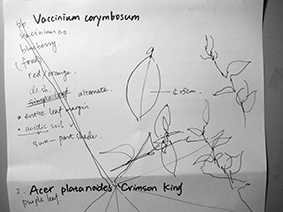 Vaccinium corymbosum
vaccinium co.
blueberry.
(food)
red/orange
alternate
• entire leaf margin
• acidic soil
sun - part shade
2. Acer platanoides Crimson King
purple leaf